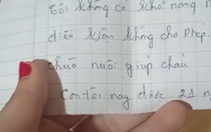 Tôi không có khả năng n
điều kiện không cho phép.
chùa nuôi giúp cháu
Con tôi nay được 21 n